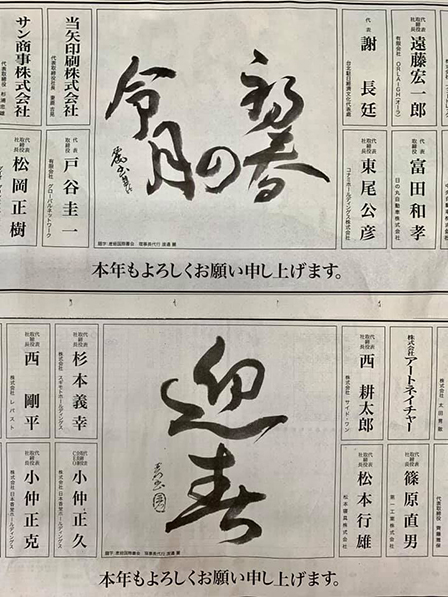 代表取締役社長
遠藤宏一郎
有限会社 ORLAIGH(オーラ)
代表
謝 長廷
台北駐日経済文化代表処
代表取締役社長
富田和孝
日の丸自動車株式会社
代表取締役社長
東尾公彦
コナミホールディングス株式会社
初春の
令月
本年もよろしくお願い申し上げます。
当矢印刷株式会社
サン商事株式会社
代表取締役
戸谷圭一
有限会社 グローバルネットワーク
代表取締役社長
松岡正樹
株式会社アートネイチャー
代表取締役社長
西 耕太郎
株式会社 サイド・ワン
代表取締役社長
篠原直男
第一工業株式会社
代表取締役社長
松本行雄
松本寝具株式会社
迎春
本年もよろしくお願い申し上げます。
代表取締役社長
杉本義幸
株式会社 スギモトホールディングス
代表取締役社長
西 剛平
株式会社 レバスト
小仲正久
株式会社 日本香堂ホールディングス
代表取締役社長
小仲正克
株式会社 日本香堂ホールディングス